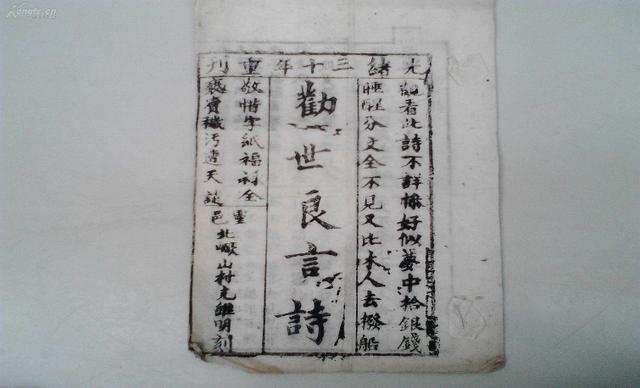 光緒三十年重刊
觀看此詩不詳好似夢中拾銀錢
睡醒分文全不見又比木人去撥船
勸世良言詩
敬惜字紙福祿全
穢污遭天
靈邑
北山村維明刻
Kongfz.cn